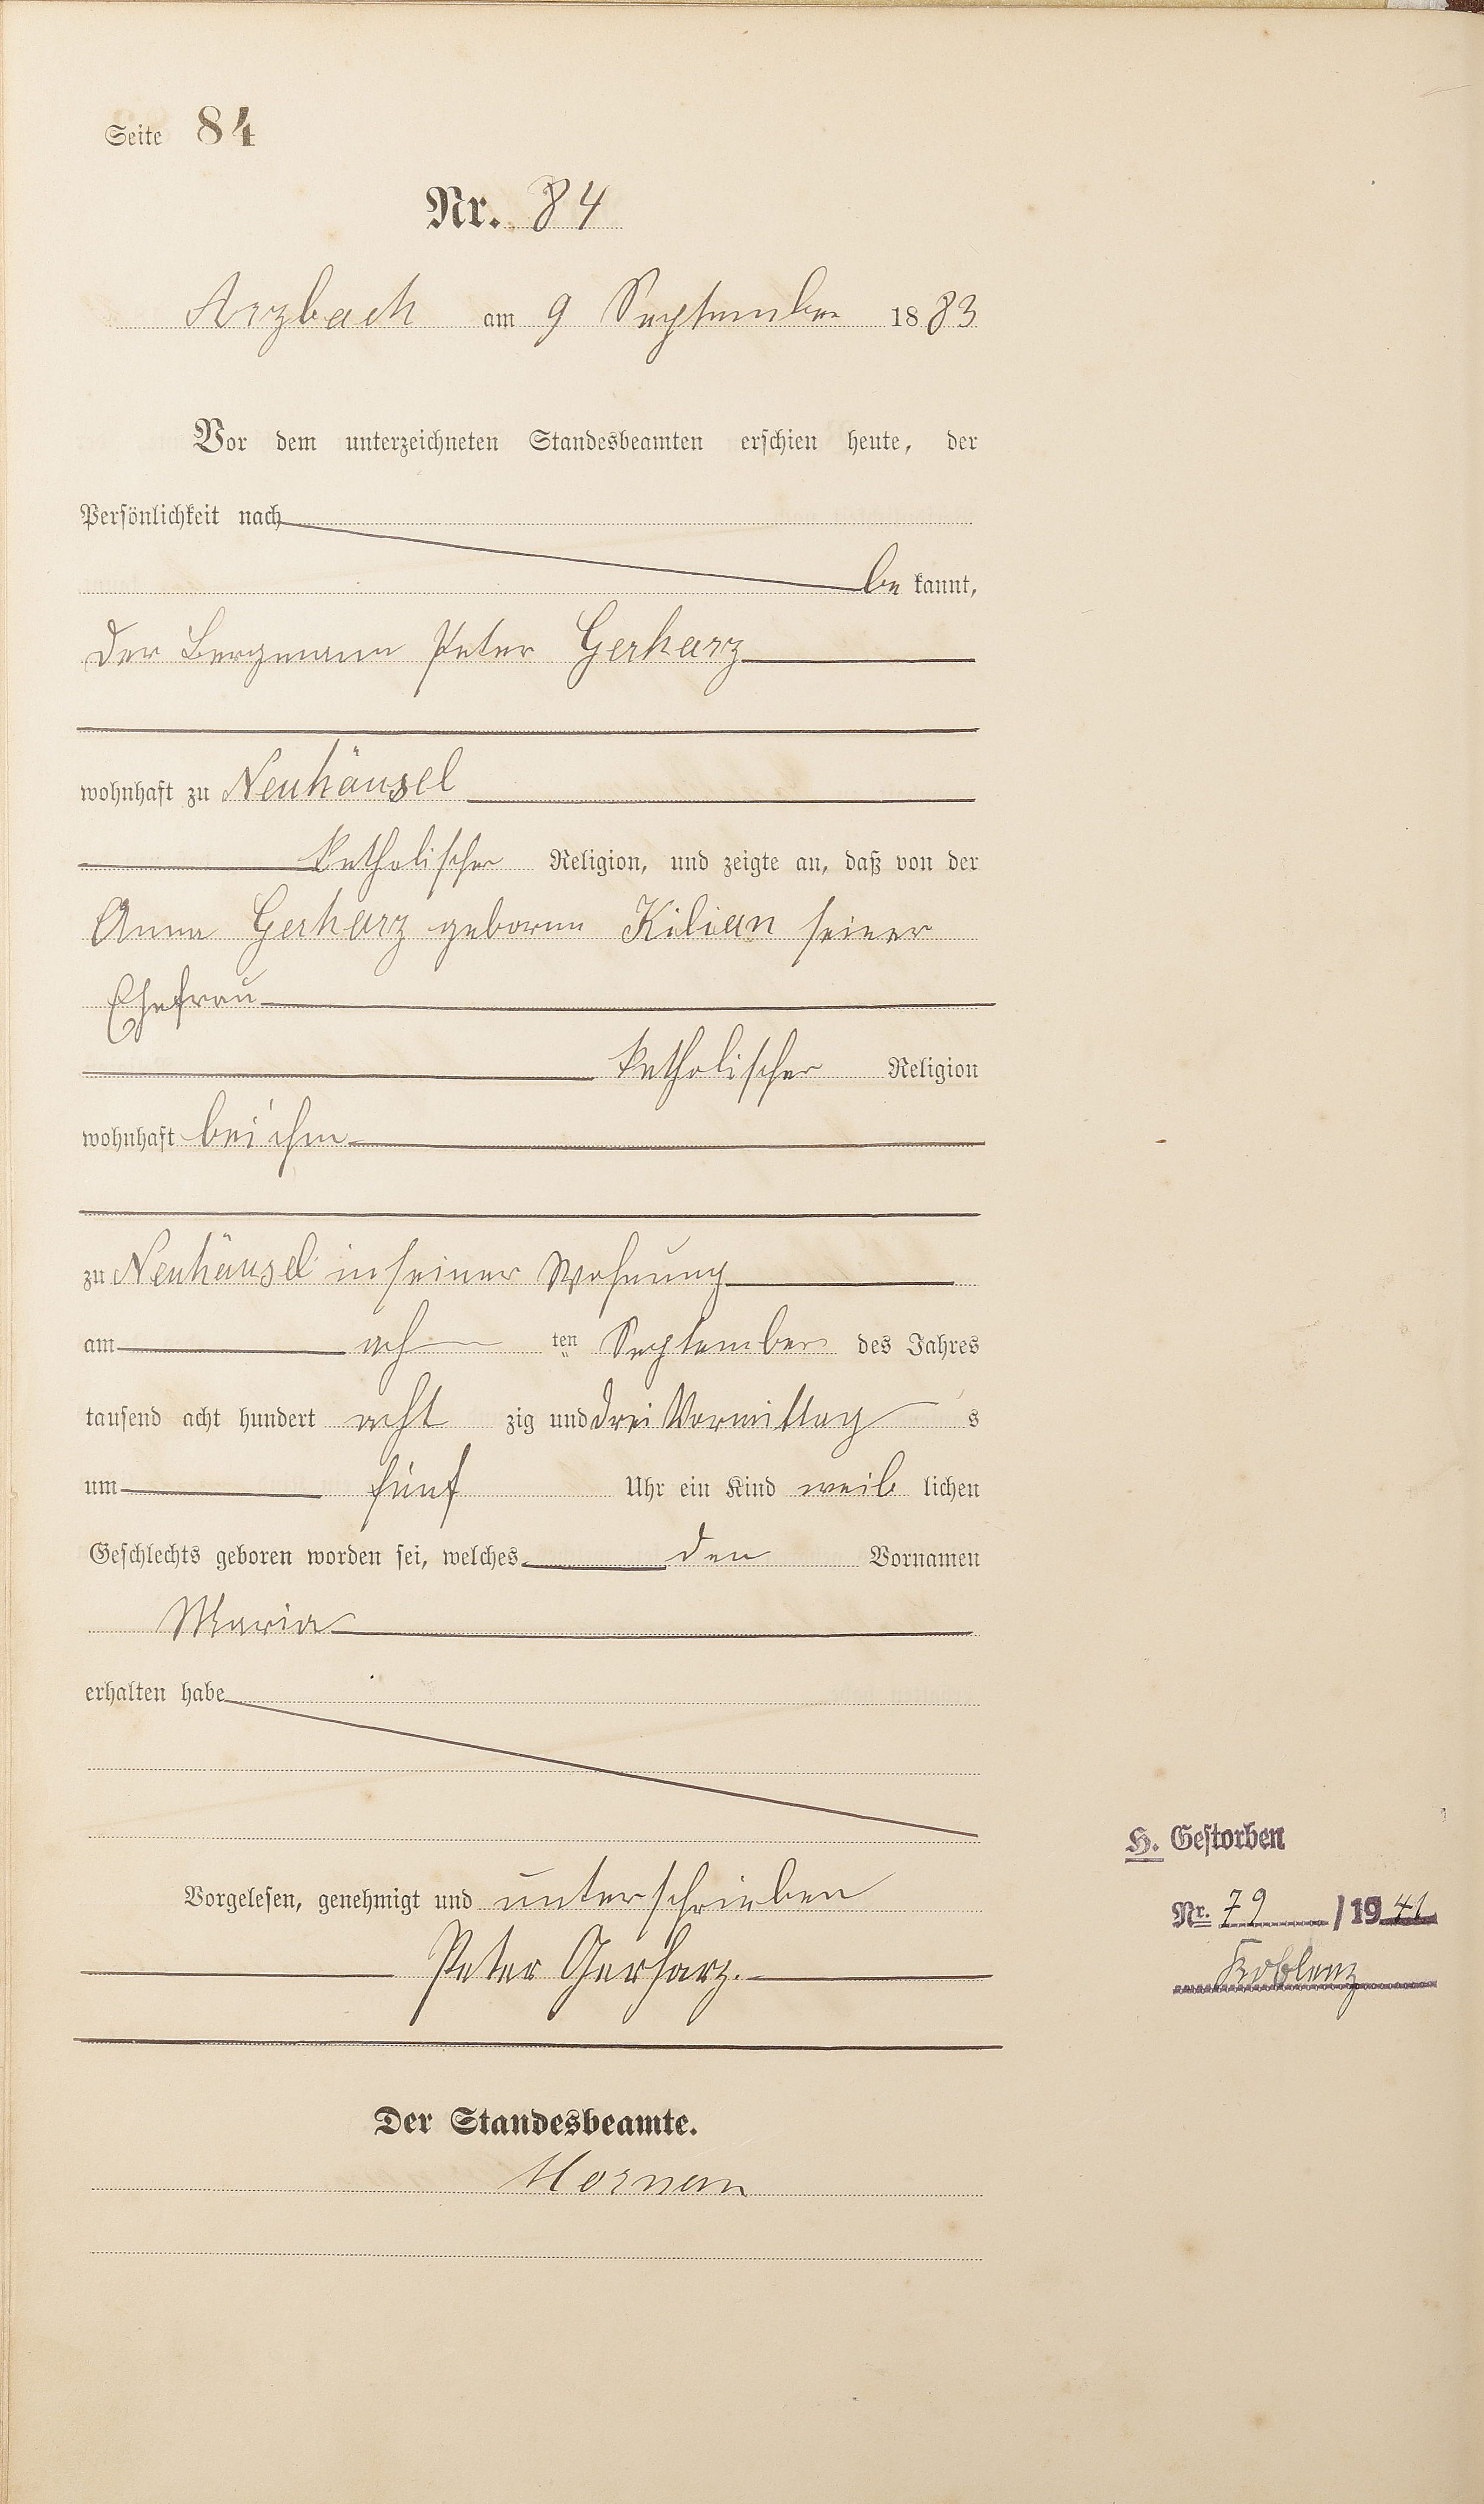 Seite 84
Nr. 84
Arzbach am 9 September 1883
Vor dem unterzeichneten Standesbeamten erschien heute, der
Persönlichkeit nach
be kannt,
der Bergmann Peter Gerharz
wohnhaft zu Neuhäusel
katholischer Religion, und zeigte an, daß von der
Anna Gerharz geborne Kilian seiner
Ehefrau
katholischer Religion
wohnhaft bei ihm
zu Neuhäusel in seiner Wohnung
am ach ten September des Jahres
tausend acht hundert acht zig und drei Vormittag s
um fünf Uhr ein Kind weib lichen
Geschlechts geboren worden sei, welches den Vornamen
Maria
erhalten habe
Vorgelesen, genehmigt und unterschrieben
Peter Gerharz.
H. Gestorben
Nr. 79 /1941
Koblenz
Der Standesbeamte.